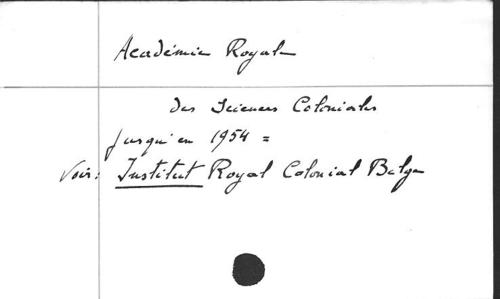 Académie Royale
des Sciences Coloniales
jusqu'en 1954 =
Voir: Institut Royal Colonial Belge